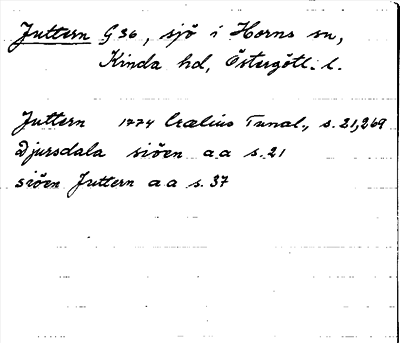 Juttern G 36, sjö i Horns sn,
Kinda hd, Östergötl. l.
Juttern 1774 Crælius Tunal., s. 21,269
Djursdala siöen a.a s. 21
siöen Juttern a a s. 37